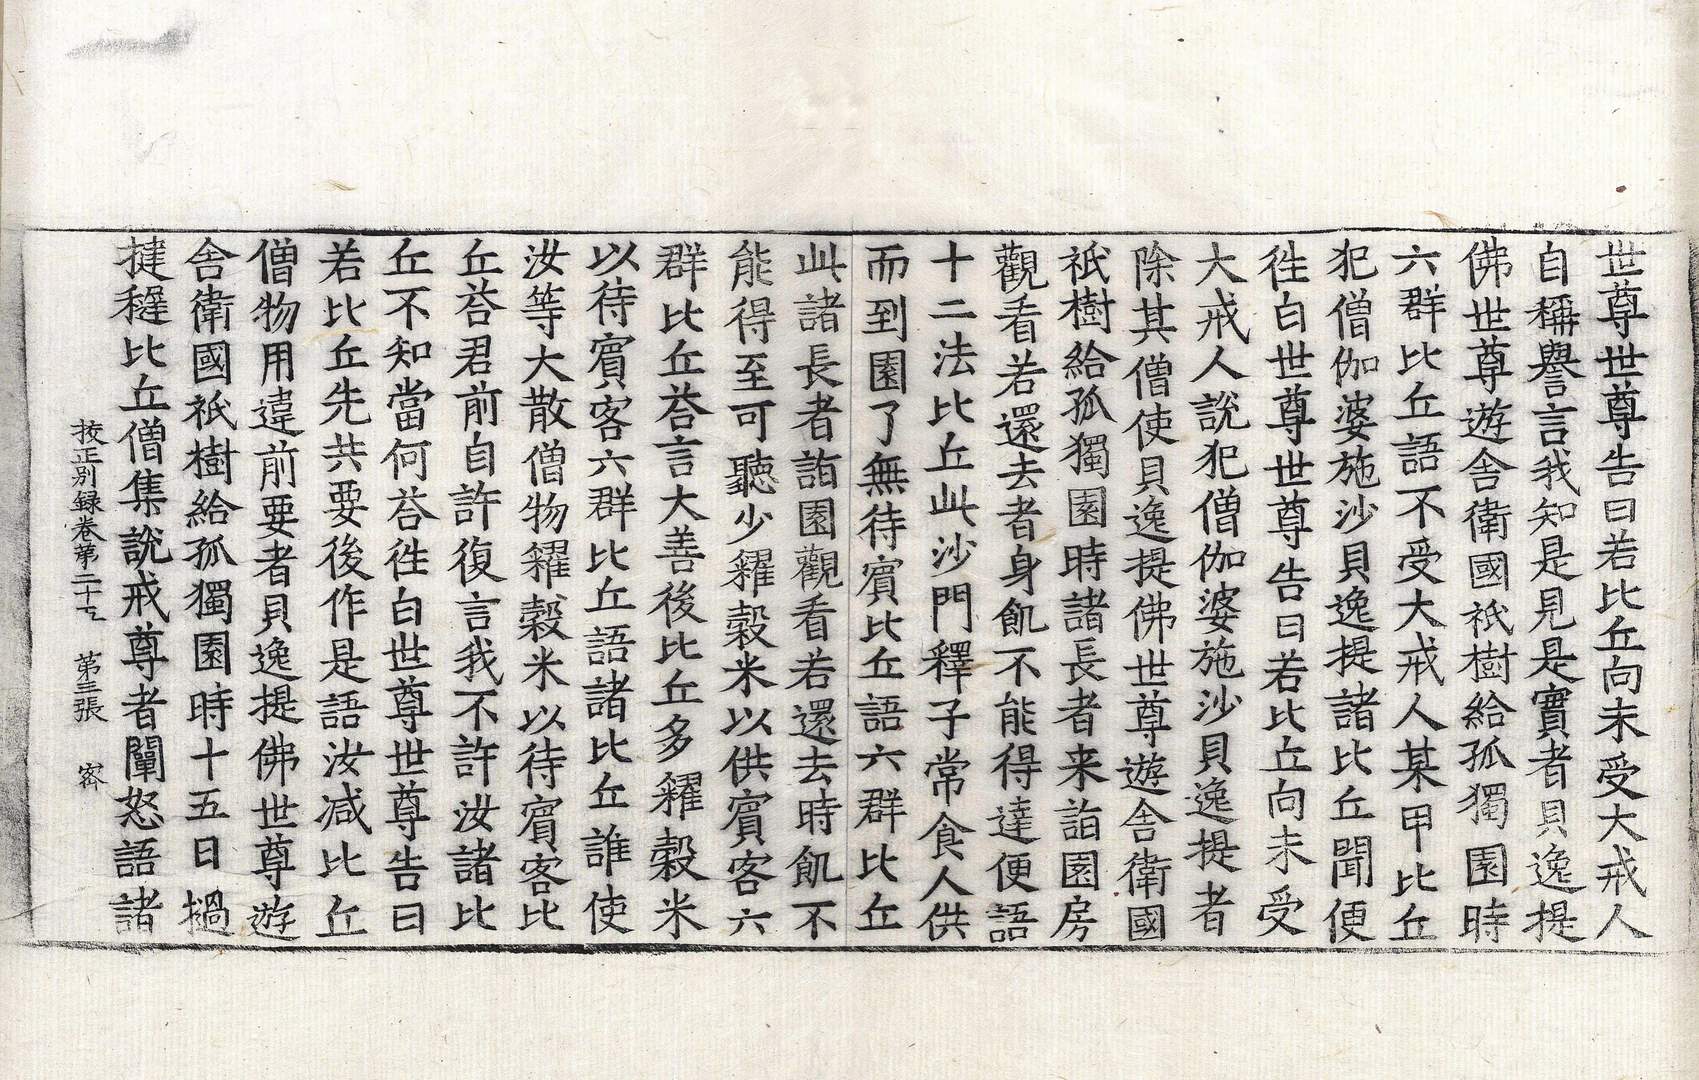 世尊世尊告曰若比丘向未受大戒人
自稱譽言我知是見是實者貝逸提
佛世尊遊舍衛國祇樹給孤獨園時
六群比丘語不受大戒人某甲比丘
犯僧伽婆施沙貝逸提諸比丘聞便
徃白世尊世尊告曰若比丘向未受
大戒人說犯僧伽婆施沙貝逸提者
除其僧使貝逸提佛世尊遊舍衛國
祇樹給孤獨園時諸長者来詣園房
觀看若還去者身飢不能得達便語
十二法比丘此沙門釋子常食人供
而到園了無待賓比丘語六群比丘
此諸長者詣園觀看若還去時飢不
能得至可聽少糴穀米以供賓客六
群比丘荅言大善後比丘多糴穀米
以待賓客六群比丘語諸比丘誰使
汝等大散僧物糴穀米以待賓客比
丘荅君前自許復言我不許汝諸比
丘不知當何荅徃白世尊世尊告曰
若比丘先共要後作是語汝减比丘
僧物用違前要者貝逸提佛世尊遊
舍衛國祇樹給孤獨園時十五日撾
揵稺比丘僧集說戒尊者闡怒語諸
挍正別録卷第二十 第三張 密